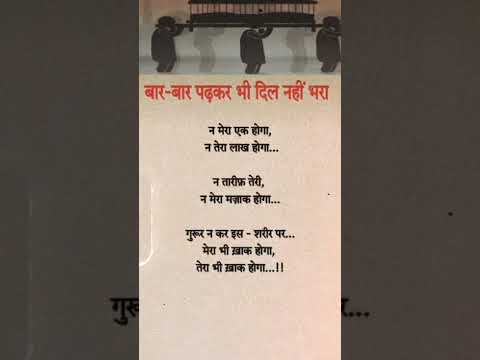 बार-बार पढ़कर भी दिल नहीं भरा
न मेरा एक होगा,
न तेरा लाख होगा...
न तारीफ़ तेरी,
न मेरा मज़ाक होगा...
गुरूर न कर इस - शरीर पर...
मेरा भी ख़ाक होगा,
तेरा भी ख़ाक होगा...!!